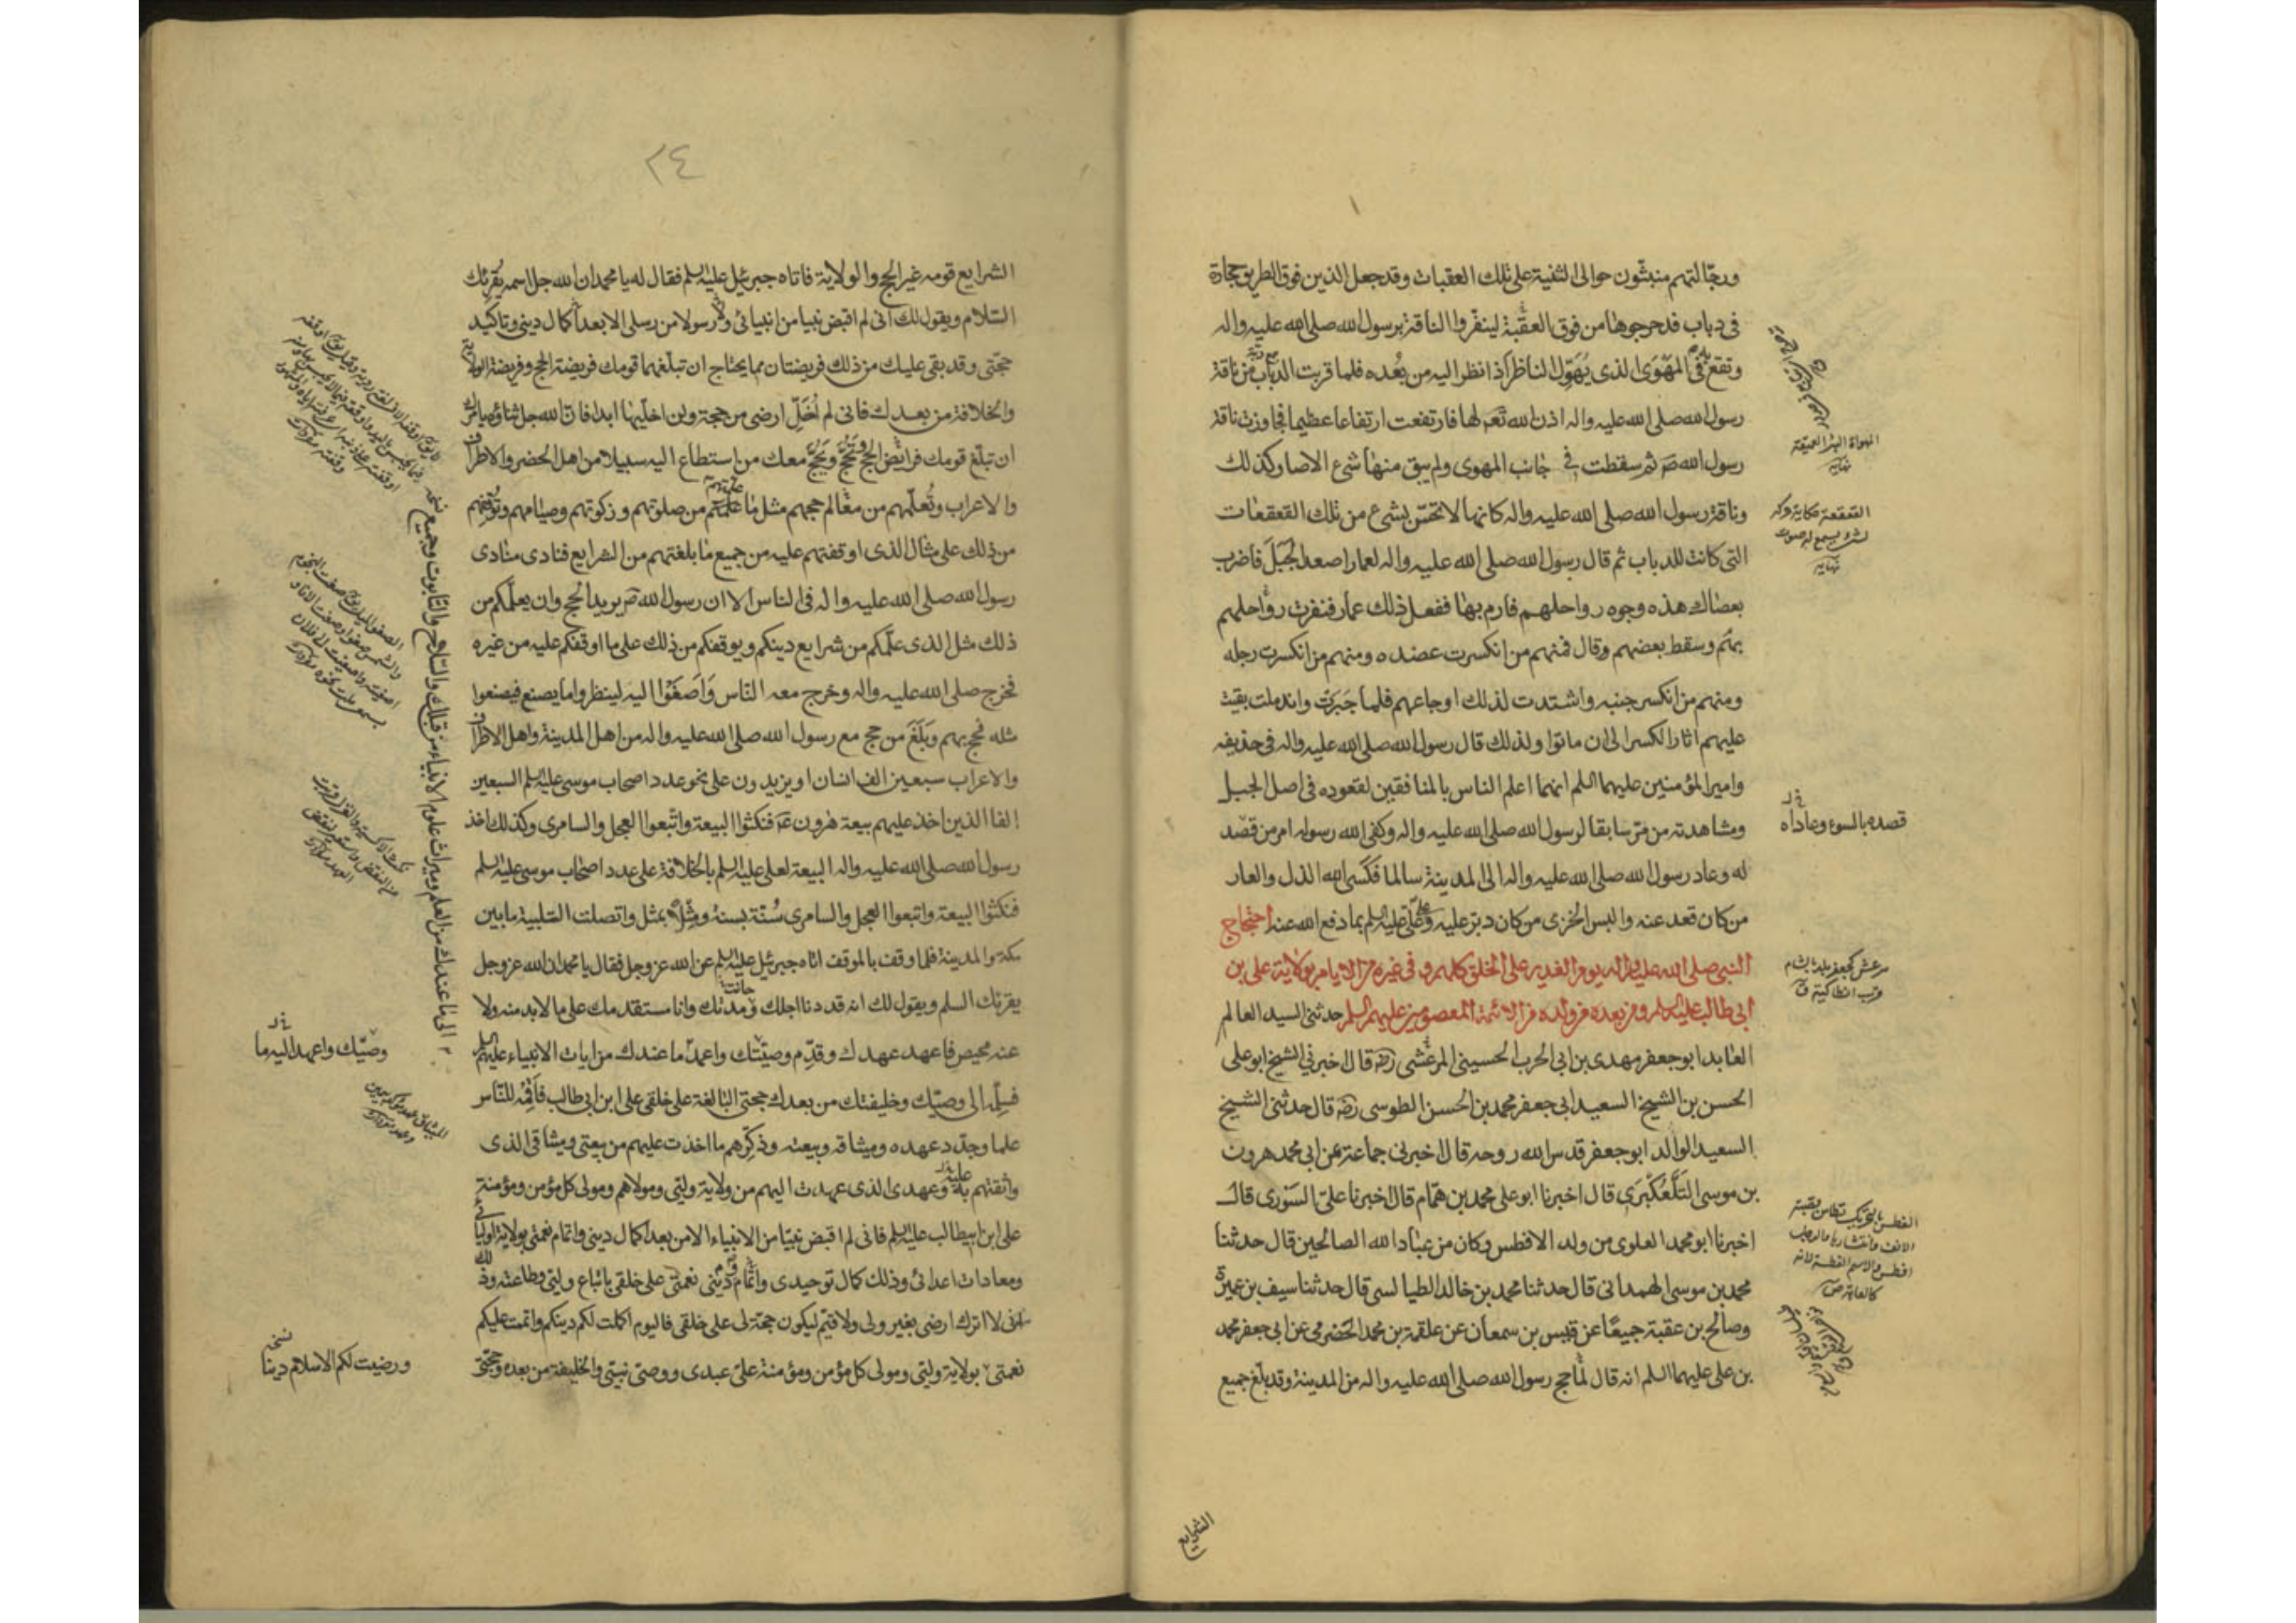 ورجالتهم منبثون حوالى الثنية على تلك العقبات وقد جعل الذين فوق الطريق حجارة
فى دباب فدحرجوها من فوق العقبة لينفروا الناقة برسول الله صلى الله عليه واله
وتقع فى المهوى الذى يهول الناظر اذا نظر اليه من بعده فلما قربت الدباب من ناقة
رسول الله صلى الله عليه واله اذن الله تعه لها فارتفعت ارتفاعا عظيما فجاوزت ناقة
رسول الله صه ثم سقطت فى جانب المهوى ولم يبق منها شئ الا صار كذلك
وناقة رسول الله صلى الله عليه واله كانها لا تحس بشئ من تلك القعقعات
التى كانت للدباب ثم قال رسول الله صلى الله عليه واله لعمار اصعد الجبل فاضرب
بعصاك هذه وجوه رواحلهم فارم بها ففعل ذلك عمار فنفرت رواحلهم
بهم وسقط بعضهم وقال فمنهم من انكسرت عضده ومنهم من انكسرت رجله
ومنهم من انكسر جنبه واشتدت لذلك اوجاعهم فلما جبرت واندملت بقيت
عليهم اثار الكسر الى ان ماتوا ولذلك قال رسول الله صلى الله عليه واله فى حذيفه
وامير المؤمنين عليهما السلم انهما اعلم الناس بالمنافقين لقعوده فى اصل الجبل
ومشاهدته من مر سابقا لرسول الله صلى الله عليه واله وكفى الله رسوله امر من قصد
له وعاد رسول الله صلى الله عليه واله الى المدينة سالما فكسى الله الذل والعار
من كان قعد عنه والبس الخزى من كان دبر عليه وعلى على عليه السلم بما دفع الله عنه احتجاج
النبى صلى الله عليه واله يوم الغدير على الخلق كلهم وفى غيره من الايام بولاية على بن
ابى طالب عليه السلم ومن بعده من ولده من الائمة المعصومين عليهم السلم حدثنى السيد العالم
العابد ابو جعفر مهدى بن ابى الحرب الحسينى المرعشى رضه قال اخبرنى الشيخ ابو على
الحسن بن الشيخ السعيد ابى جعفر محمد بن الحسن الطوسى رضه قال حدثنى الشيخ
السعيد الوالد ابو جعفر قدس الله روحه قال اخبرنى جماعة عن ابى محمد هرون
بن موسى التلعكبرى قال اخبرنا ابو على محمد بن همام قال اخبرنا على السورى قال
اخبرنا ابو محمد العلوى من ولد الافطس وكان من عباد الله الصالحين قال حدثنا
محمد بن موسى الهمدانى قال حدثنا محمد بن خالد الطيالسى قال حدثنا سيف بن عميرة
وصالح بن عقبة جميعا عن قيس بن سمعان عن علقمة بن محمد الحضرمى عن ابى جعفر محمد
بن على عليهما السلم انه قال لما حج رسول الله صلى الله عليه واله من المدينة وقد بلغ جميع
المهواة البئر العميقة
نهاية
القعقعة حكاية حركة
لشئ يسمع له صوت
نهاية
قصده بالسوء وعاداه
مرعش كجعفر بلد بالشام
قرب انطاكية ق
الفطس بالتحريك تطامن قصبة
الانف وانتشارها والرجل
افطس والاسم الفطسة لانه
كالعاهة ص
الشرايع
٢٤
الشرايع قومه غير الحج والولاية فاتاه جبرئيل عليه السلم فقال له يا محمد ان الله جل اسمه يقرئك
السلام ويقول لك انى لم اقبض نبيا من انبيائى ولا رسولا من رسلى الا بعد اكمال دينى وتاكيد
حجتى وقد بقى عليك من ذلك فريضتان مما يحتاج ان تبلغهما قومك فريضة الحج وفريضة الولاية
والخلافة من بعدك فانى لم اخل ارضى من حجة ولن اخليها ابدا فان الله جل ثناؤه يامرك
ان تبلغ قومك فرائض الحج وتحج ويحج معك من استطاع اليه سبيلا من اهل الحضر والاطراف
والاعراب وتعلمهم من معالم حجهم مثل ما علمتهم من صلوتهم وزكوتهم وصيامهم وتوقفهم
من ذلك على مثال الذى اوقفتهم عليه من جميع ما بلغتهم من الشرايع فنادى منادى
رسول الله صلى الله عليه واله فى الناس الا ان رسول الله صه يريد الحج وان يعلمكم من
ذلك مثل الذى علمكم من شرايع دينكم ويوقفكم من ذلك على ما اوقفكم عليه من غيره
فخرج صلى الله عليه واله وخرج معه الناس واصغوا اليه لينظروا ما يصنع فيصنعوا
مثله فحج بهم وبلغ من حج مع رسول الله صلى الله عليه واله من اهل المدينة واهل الاطراف
والاعراب سبعين الف انسان او يزيدون على نحو عدد اصحاب موسى عليه السلم السبعين
الفا الذين اخذ عليهم بيعة هرون عه فنكثوا البيعة واتبعوا العجل والسامرى وكذلك اخذ
رسول الله صلى الله عليه واله البيعة لعلى عليه السلم بالخلافة على عدد اصحاب موسى عليه السلم
فنكثوا البيعة واتبعوا العجل والسامرى سنة بسنة ومثلا بمثل واتصلت التلبية ما بين
مكة والمدينة فلما وقف بالموقف اتاه جبرئيل عليه السلم عن الله عز وجل فقال يا محمد ان الله عز وجل
يقرئك السلم ويقول لك انه قد دنا اجلك ومدتك وانا مستقدمك على ما لا بد منه ولا
عنه محيص فاعهد عهدك وقدم وصيتك واعمد ما عندك من ايات الانبياء عليهم السلم
فسلمه الى وصيك وخليفتك من بعدك حجتى البالغة على خلقى على ابن ابى طالب فاقمه للناس
علما وجدد عهده وميثاقه وبيعته وذكرهم ما اخذت عليهم من بيعتى وميثاقى الذى
واثقتهم به وعهدى الذى عهدت اليهم من ولاية وليى ومولاهم ومولى كل مؤمن ومؤمنة
على ابن ابيطالب عليه السلم فانى لم اقبض نبيا من الانبياء الا من بعد اكمال دينى واتمام نعمتى بولاية اوليائى
ومعادات اعدائى وذلك كمال توحيدى ودينى واتمام نعمتى على خلقى باتباع وليى وطاعته وذلك
انى لا اترك ارضى بغير ولى ولا قيم ليكون حجة لى على خلقى فاليوم اكملت لكم دينكم واتممت عليكم
نعمتى بولاية وليى ومولى كل مؤمن ومؤمنة على عبدى ووصى نبيى والخليفة من بعده وحجتى
الى ما عندك من العلم وميراث علوم الانبياء من قبلك والسلاح والتابوت وجميع
وصيك واعهد اليه ما
نسخه
ورضيت لكم الاسلام دينا